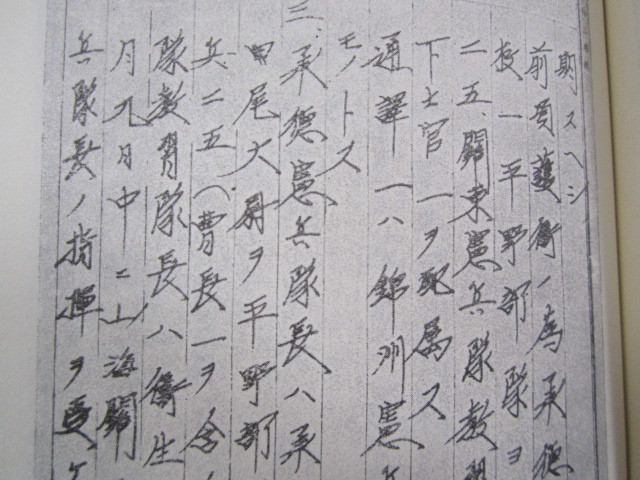 期スヘシ
前項護衛ノ為承德
校一平野部隊ヲ
二五、關東憲兵隊教習
下士官一ヲ配属ス
通譯一ハ錦州憲兵
モノトス
三、承德憲兵隊長ハ承
田尾大尉ヲ平野部
兵二五（曹長一ヲ含
隊教習隊長ハ衛生
月九日中ニ山海關
兵隊長ノ指揮ヲ受ケ